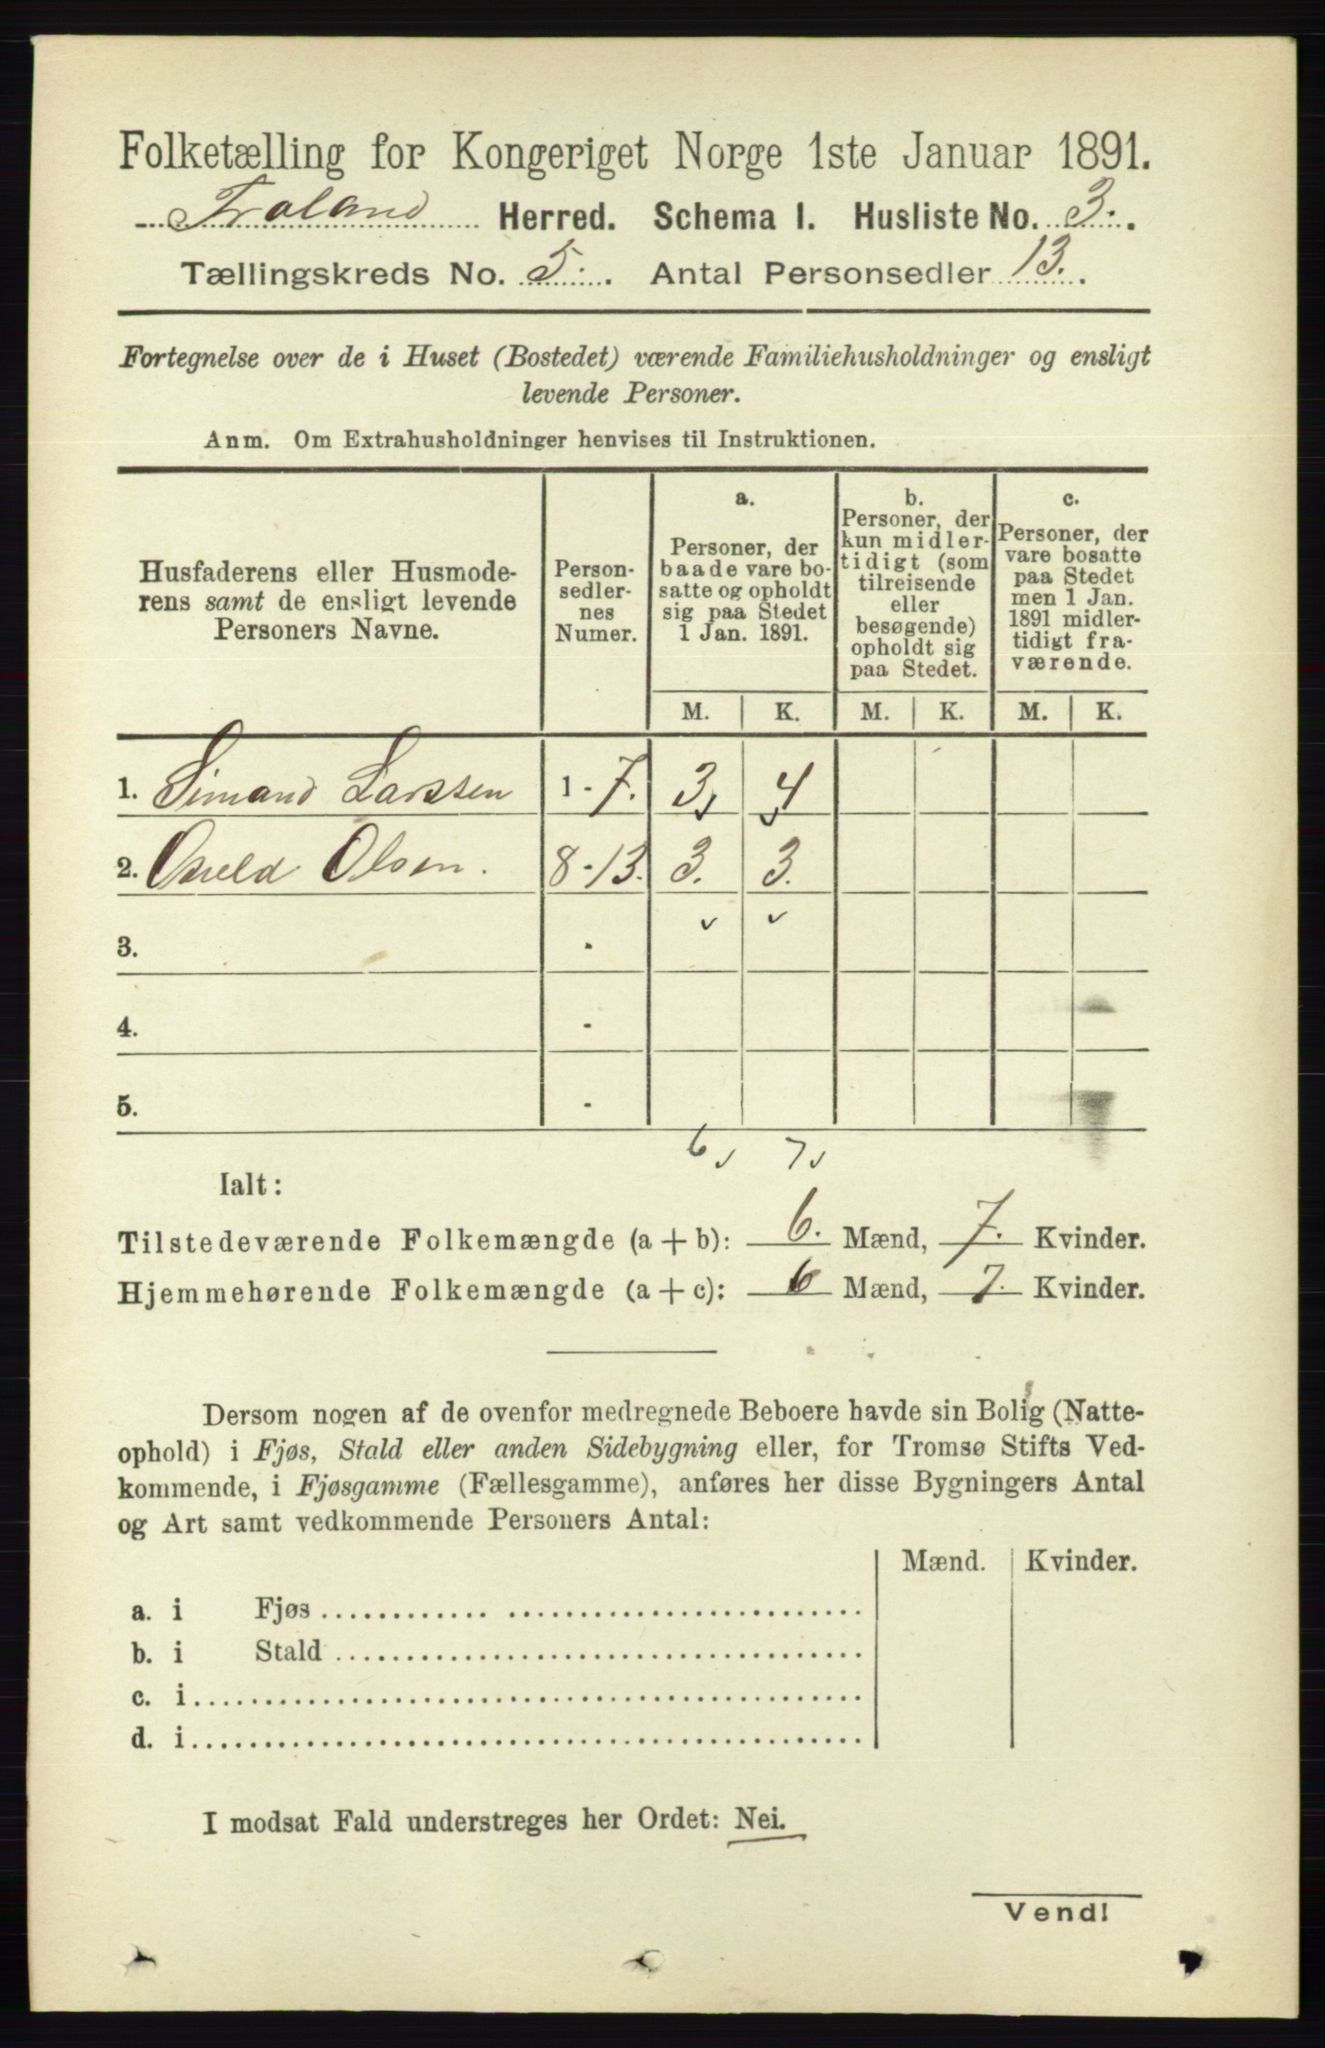 Folketælling for Kongeriget Norge 1ste Januar 1891.
Froland Herred. Schema I. Husliste No. 3.
Tællingskreds No. 5. Antal Personsedler 13.
Fortegnelse over de i Huset (Bostedet) værende Familiehusholdninger og ensligt
levende Personer.
Anm. Om Extrahusholdninger henvises til Instruktionen.
Husfaderens eller Husmode-
rens samt de ensligt levende
Personers Navne.
Person-
sedler-
nes
Numer.
a.
Personer, der
baade vare bo-
satte og opholdt
sig paa Stedet
1 Jan. 1891.
b.
Personer, der
kun midler-
tidigt (som
tilreisende
eller
besøgende)
opholdt sig
paa Stedet.
c.
Personer, der
vare bosatte
paa Stedet
men 1 Jan.
1891 midler-
tidigt fra-
værende.
M. K. M. K. M. K.
1. Simand Larssen 1-7. 3 4
2. Olsen. 8-13. 3. 3.
3. -
4. -
5. -
6 7
Ialt:
Tilstedeværende Folkemængde (a + b): 6. Mænd, 7. Kvinder.
Hjemmehørende Folkemængde (a + c): 6 Mænd, 7. Kvinder.
Dersom nogen af de ovenfor medregnede Beboere havde sin Bolig (Natte-
ophold) i Fjøs, Stald eller anden Sidebygning eller, for Tromsø Stifts Ved-
kommende, i Fjøsgamme (Fællesgamme), anføres her disse Bygningers Antal
og Art samt vedkommende Personers Antal:
Mænd. Kvinder.
a. i Fjøs
b. i Stald
c. i
d. i
I modsat Fald understreges her Ordet: Nei.
Vend!